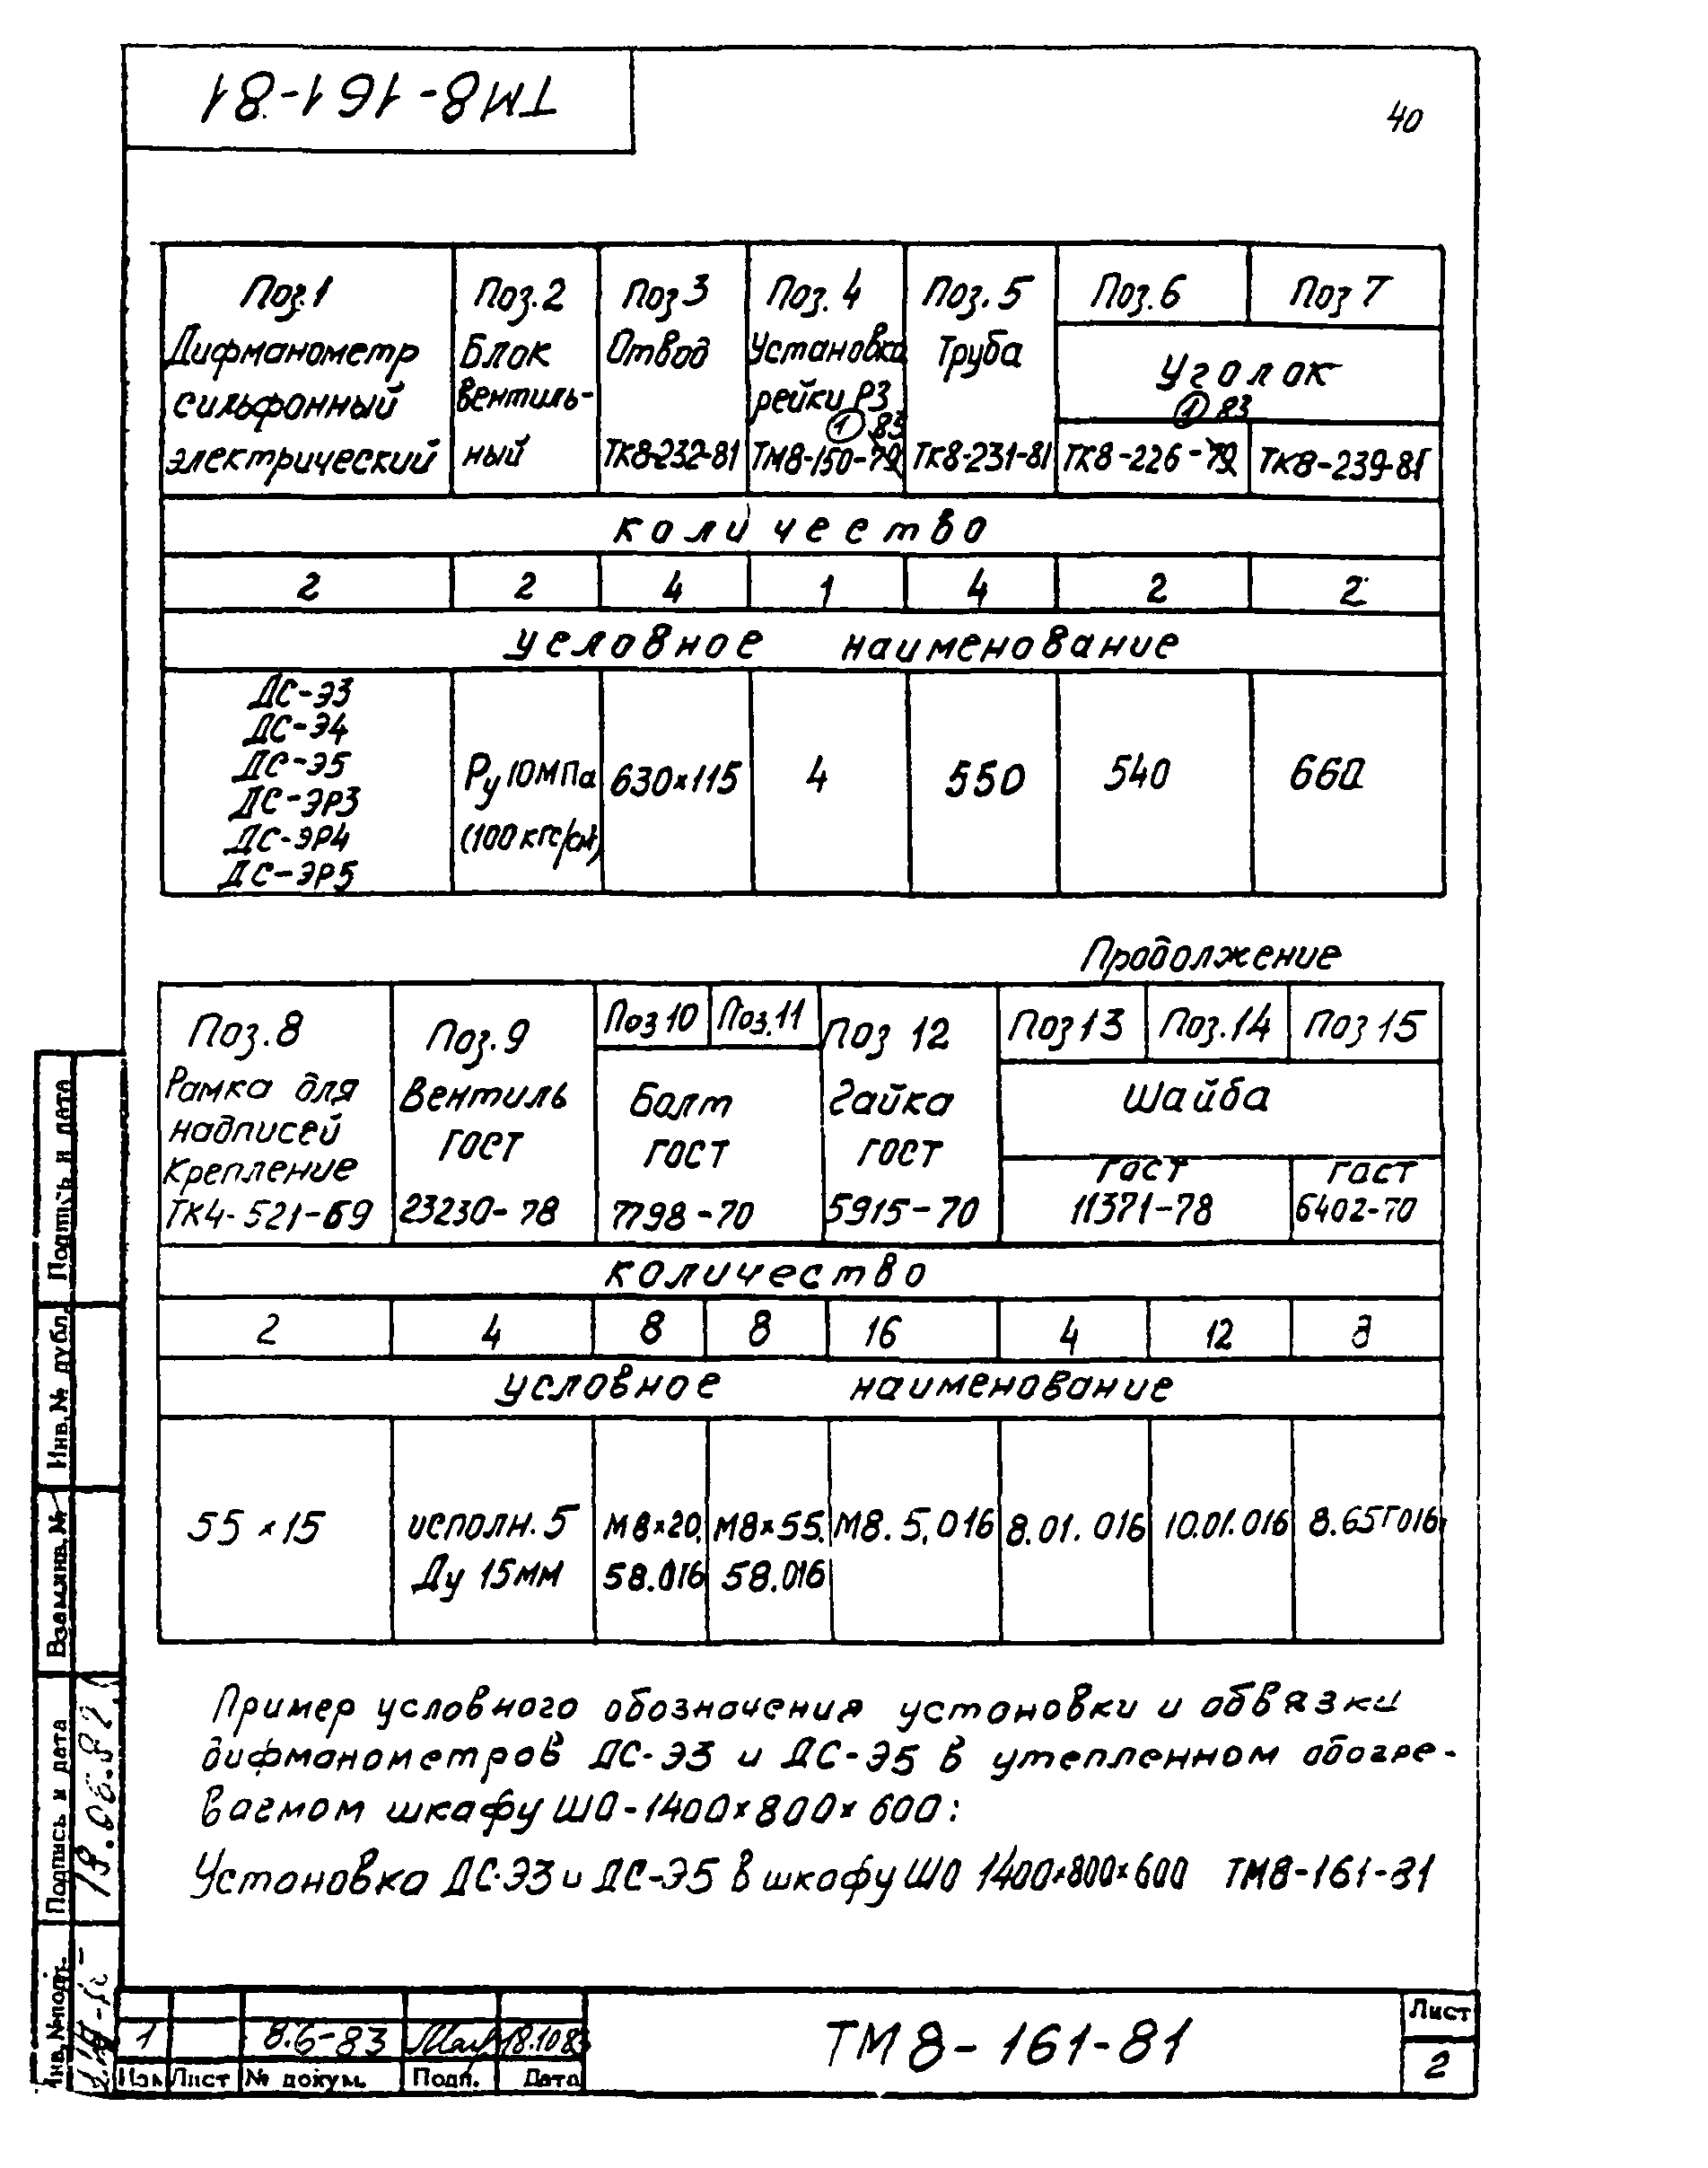 ТМ8-161-81
40
Поз.1 Поз.2 Поз 3 Поз. 4 Поз. 5 Поз.6 Поз 7
Дифманометр сильфонный электрический
Блок вентиль-
ный
Отвод
ТК8-232-81
Установка
рейки РЗ
① 83
ТМ8-150-79
Труба
ТК8-231-81
Уголок
① 83
ТК8-226-79 ТК8-239-81
количество
2 2 4 1 4 2 2
условное наименование
ДС-Э3
ДС-Э4
ДС-Э5
ДС-ЭР3
ДС-ЭР4
ДС-ЭР5
Ру 10МПа
(100 кгс/см²)
630×115 4 550 540 660
Продолжение
Поз.8 Поз.9 Поз 10 Поз.11 Поз 12 Поз 13 Поз.14 Поз 15
Рамка для
надписей
Крепление
ТК4-521-69
Вентиль
ГОСТ
23230-78
Болт
ГОСТ
7798-70
Гайка
ГОСТ
5915-70
Шайба
ГОСТ
11371-78
ГОСТ
6402-70
количество
2 4 8 8 16 4 12 8
условное наименование
55×15
исполн. 5
Ду 15мм
М8×20.
58.016
М8×55.
58.016
М8.5.016
8.01.016
10.01.016
8.65Г016
Пример условного обозначения установки и обвязки
дифманометров ДС-Э3 и ДС-Э5 в утепленном обогре-
ваемом шкафу ШО-1400×800×600:
Установка ДС-Э3 и ДС-Э5 в шкафу ШО 1400×800×600 ТМ8-161-81
Подпись и дата
Инв. № дубл.
Взам.инв. №
Подпись и дата
18.06.82
Инв. № подл.
1 8.6-83 18.10 83
Изм Лист № докум. Подп. Дата
ТМ8-161-81
Лист
2